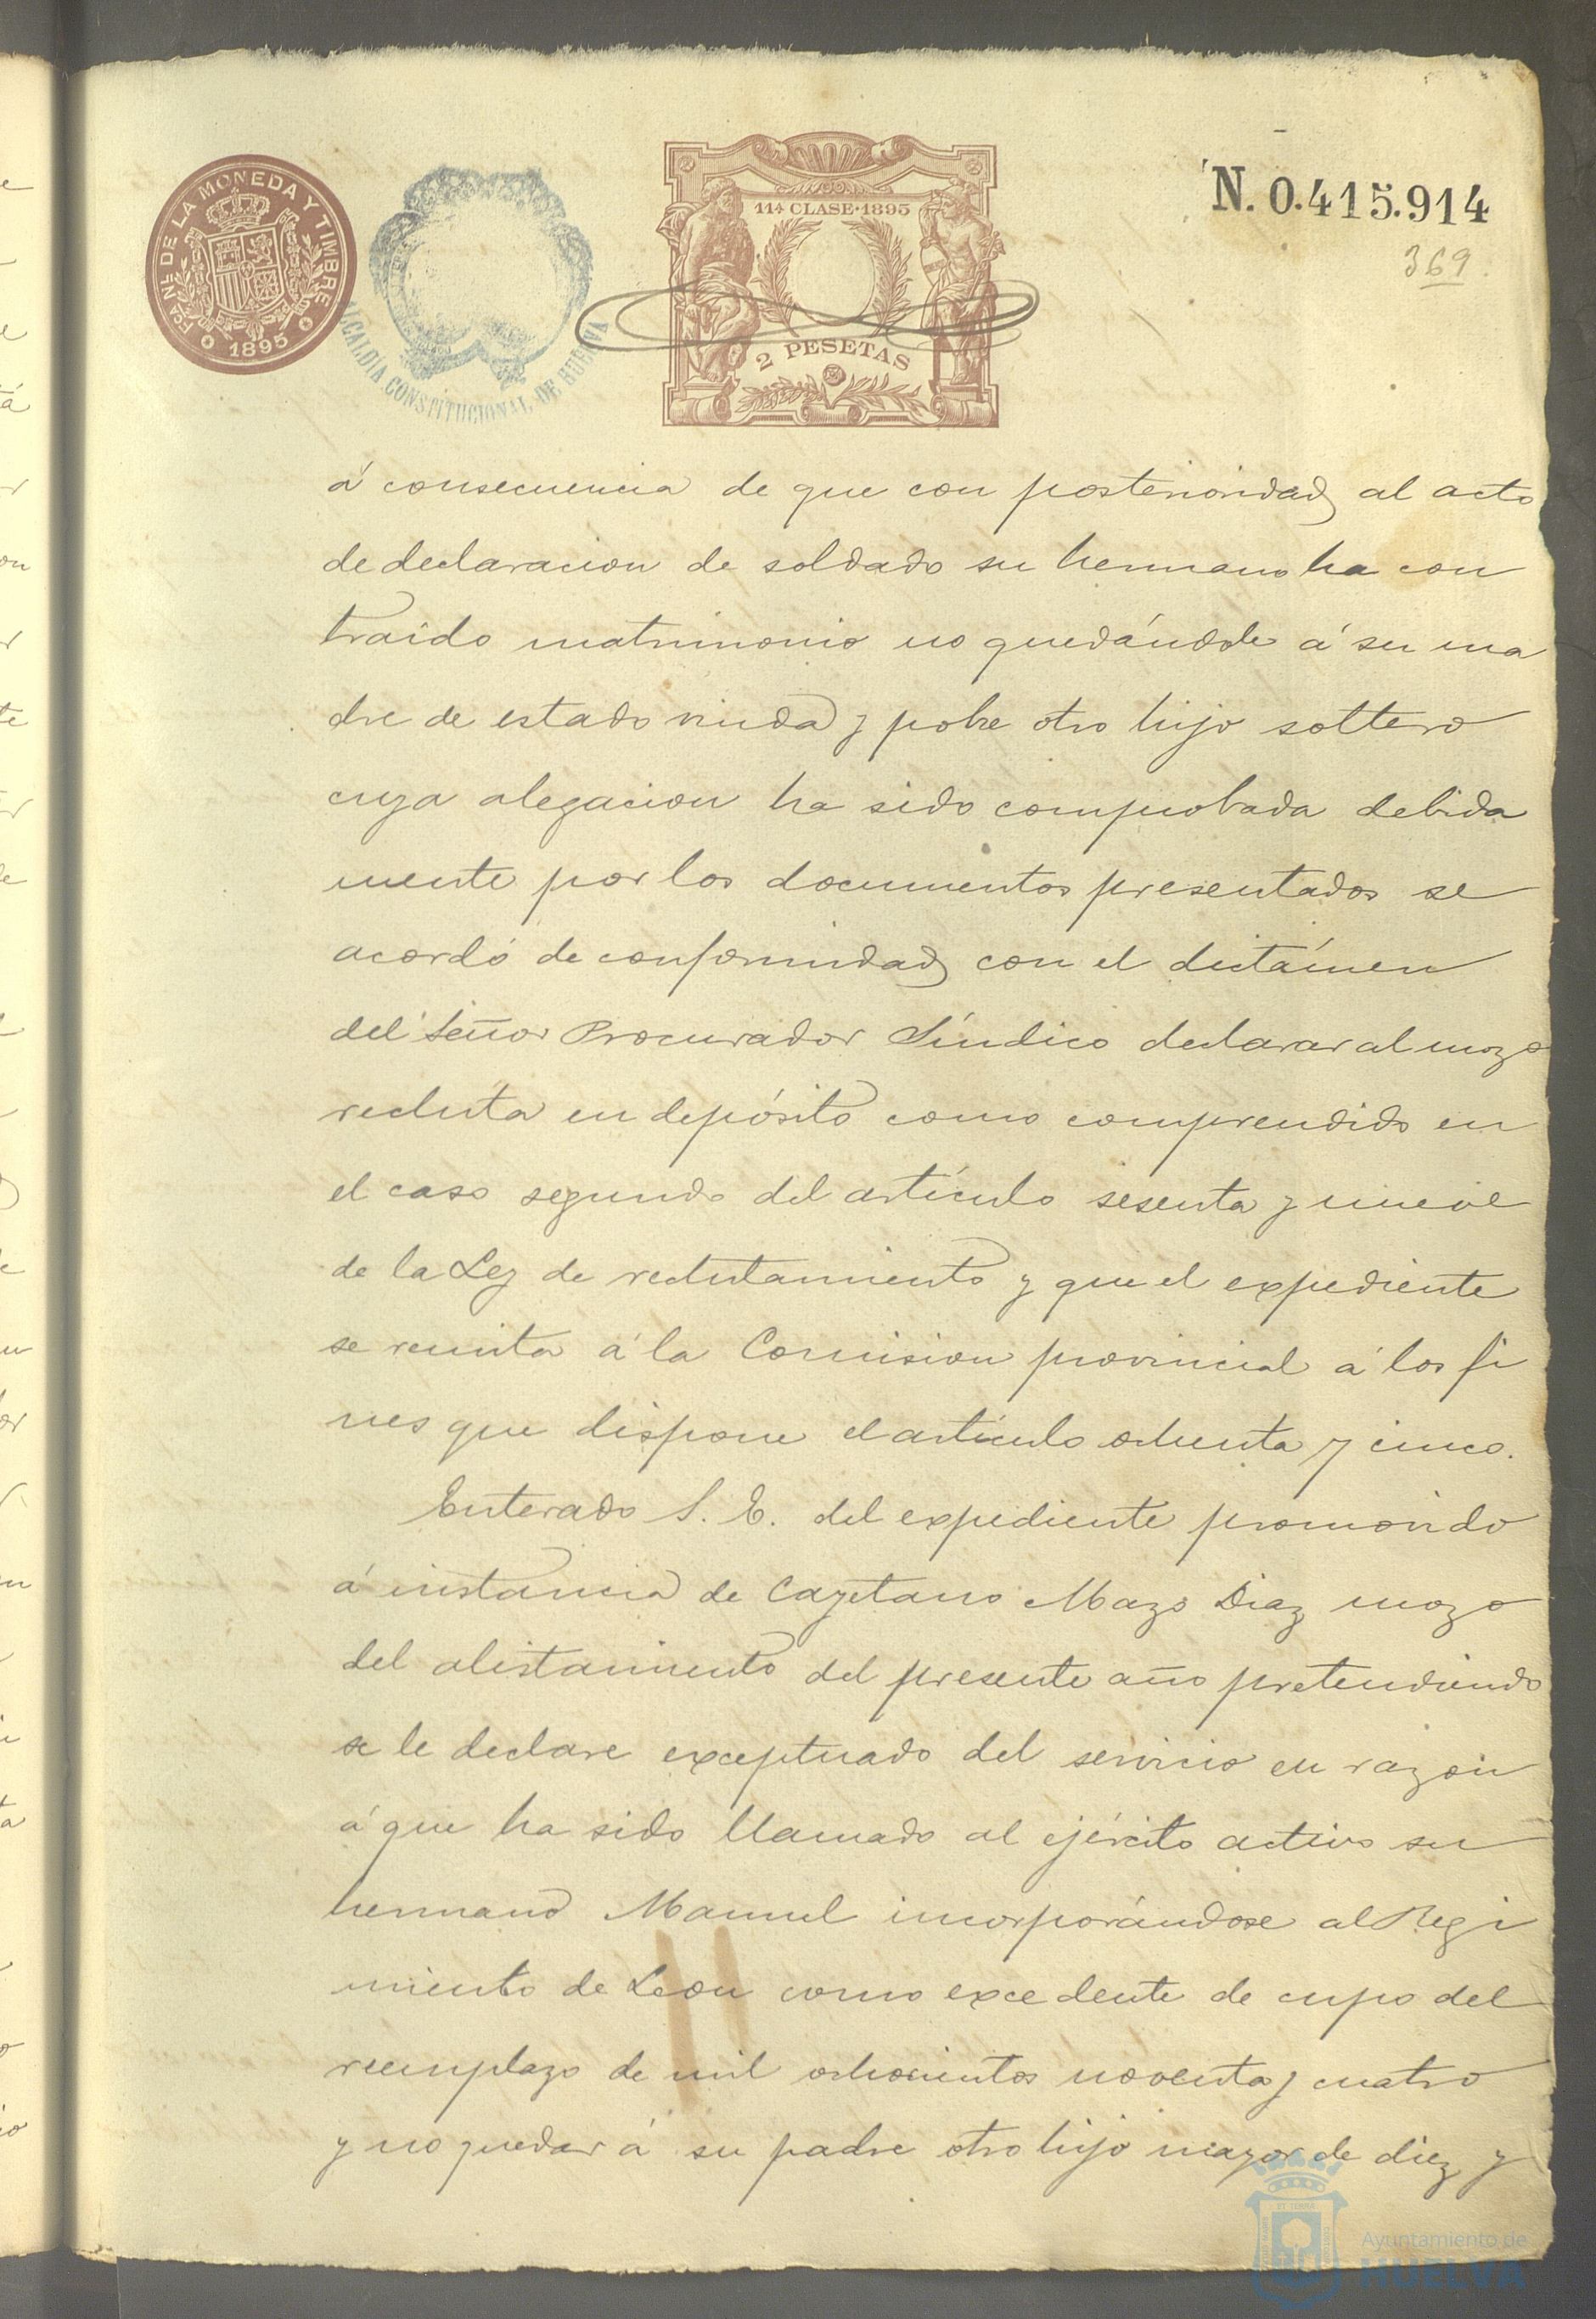 FCA NL DE LA MONEDA Y TIMBRE
1895
ALCALDÍA CONSTITUCIONAL DE HUELVA
11ª CLASE·1895
2 PESETAS
N. 0.415.914
369.
á consecuencia de que con posterioridad al acto
de declaracion de soldado su hermano ha con
traido matrimonio no quedándole á su ma
dre de estado viuda y pobre otro hijo soltero
cuya alegacion ha sido comprobada debida
mente por los documentos presentados se
acordó de conformidad con el dictámen
del Señor Procurador Síndico declarar al mozo
recluta en depósito como comprendido en
el caso segundo del artículo sesenta y nueve
de la Ley de reclutamiento y que el expediente
se remita á la Comision provincial á los fi
nes que dispone el artículo ochenta y cinco.
Enterado S. E. del expediente promovido
á instancia de Cayetano Mazo Diaz mozo
del alistamiento del presente año pretendiendo
se le declare exceptuado del servicio en razon
á que ha sido llamado al ejército activo su
hermano Manuel incorporándose al Regi
miento de Leon como excedente de cupo del
reemplazo de mil ochocientos noventa y cuatro
y no quedar á su padre otro hijo mayor de diez y
Ayuntamiento de
HUELVA